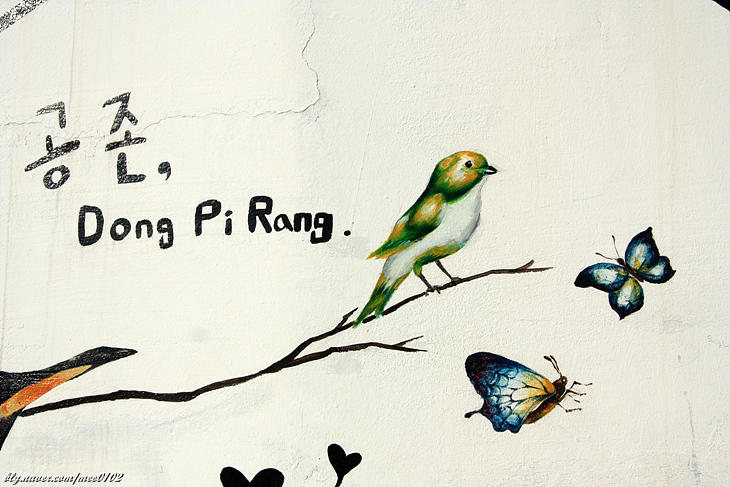 공존,
Dong Pi Rang.
blog.naver.com/mee0102